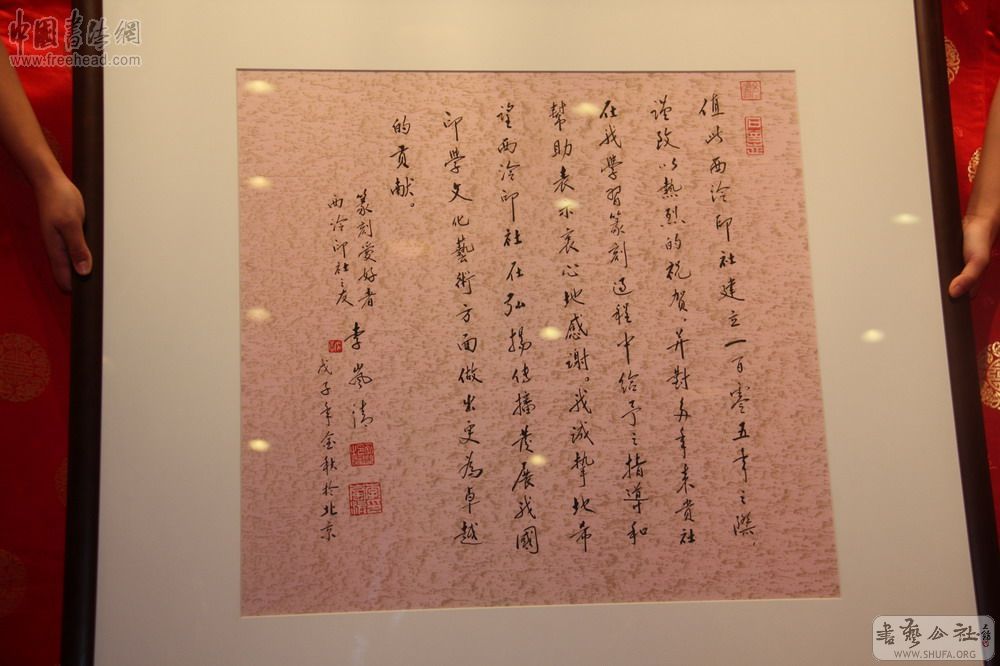 中国书法網
www.freehead.com
值此西泠印社建立一百零五年之際，
謹致以熱烈的祝贺，并對多年来贵社
在我學習篆刻过程中给予之指導和
幫助表示衷心地感谢。我诚挚地希
望西泠印社在弘揚传播发展我國
印學文化藝術方面做出更為卓越
的贡献。
篆刻爱好者
西泠印社之友
李岚清
戊子年金秋於北京
書藝公社
WWW.SHUFA.ORG